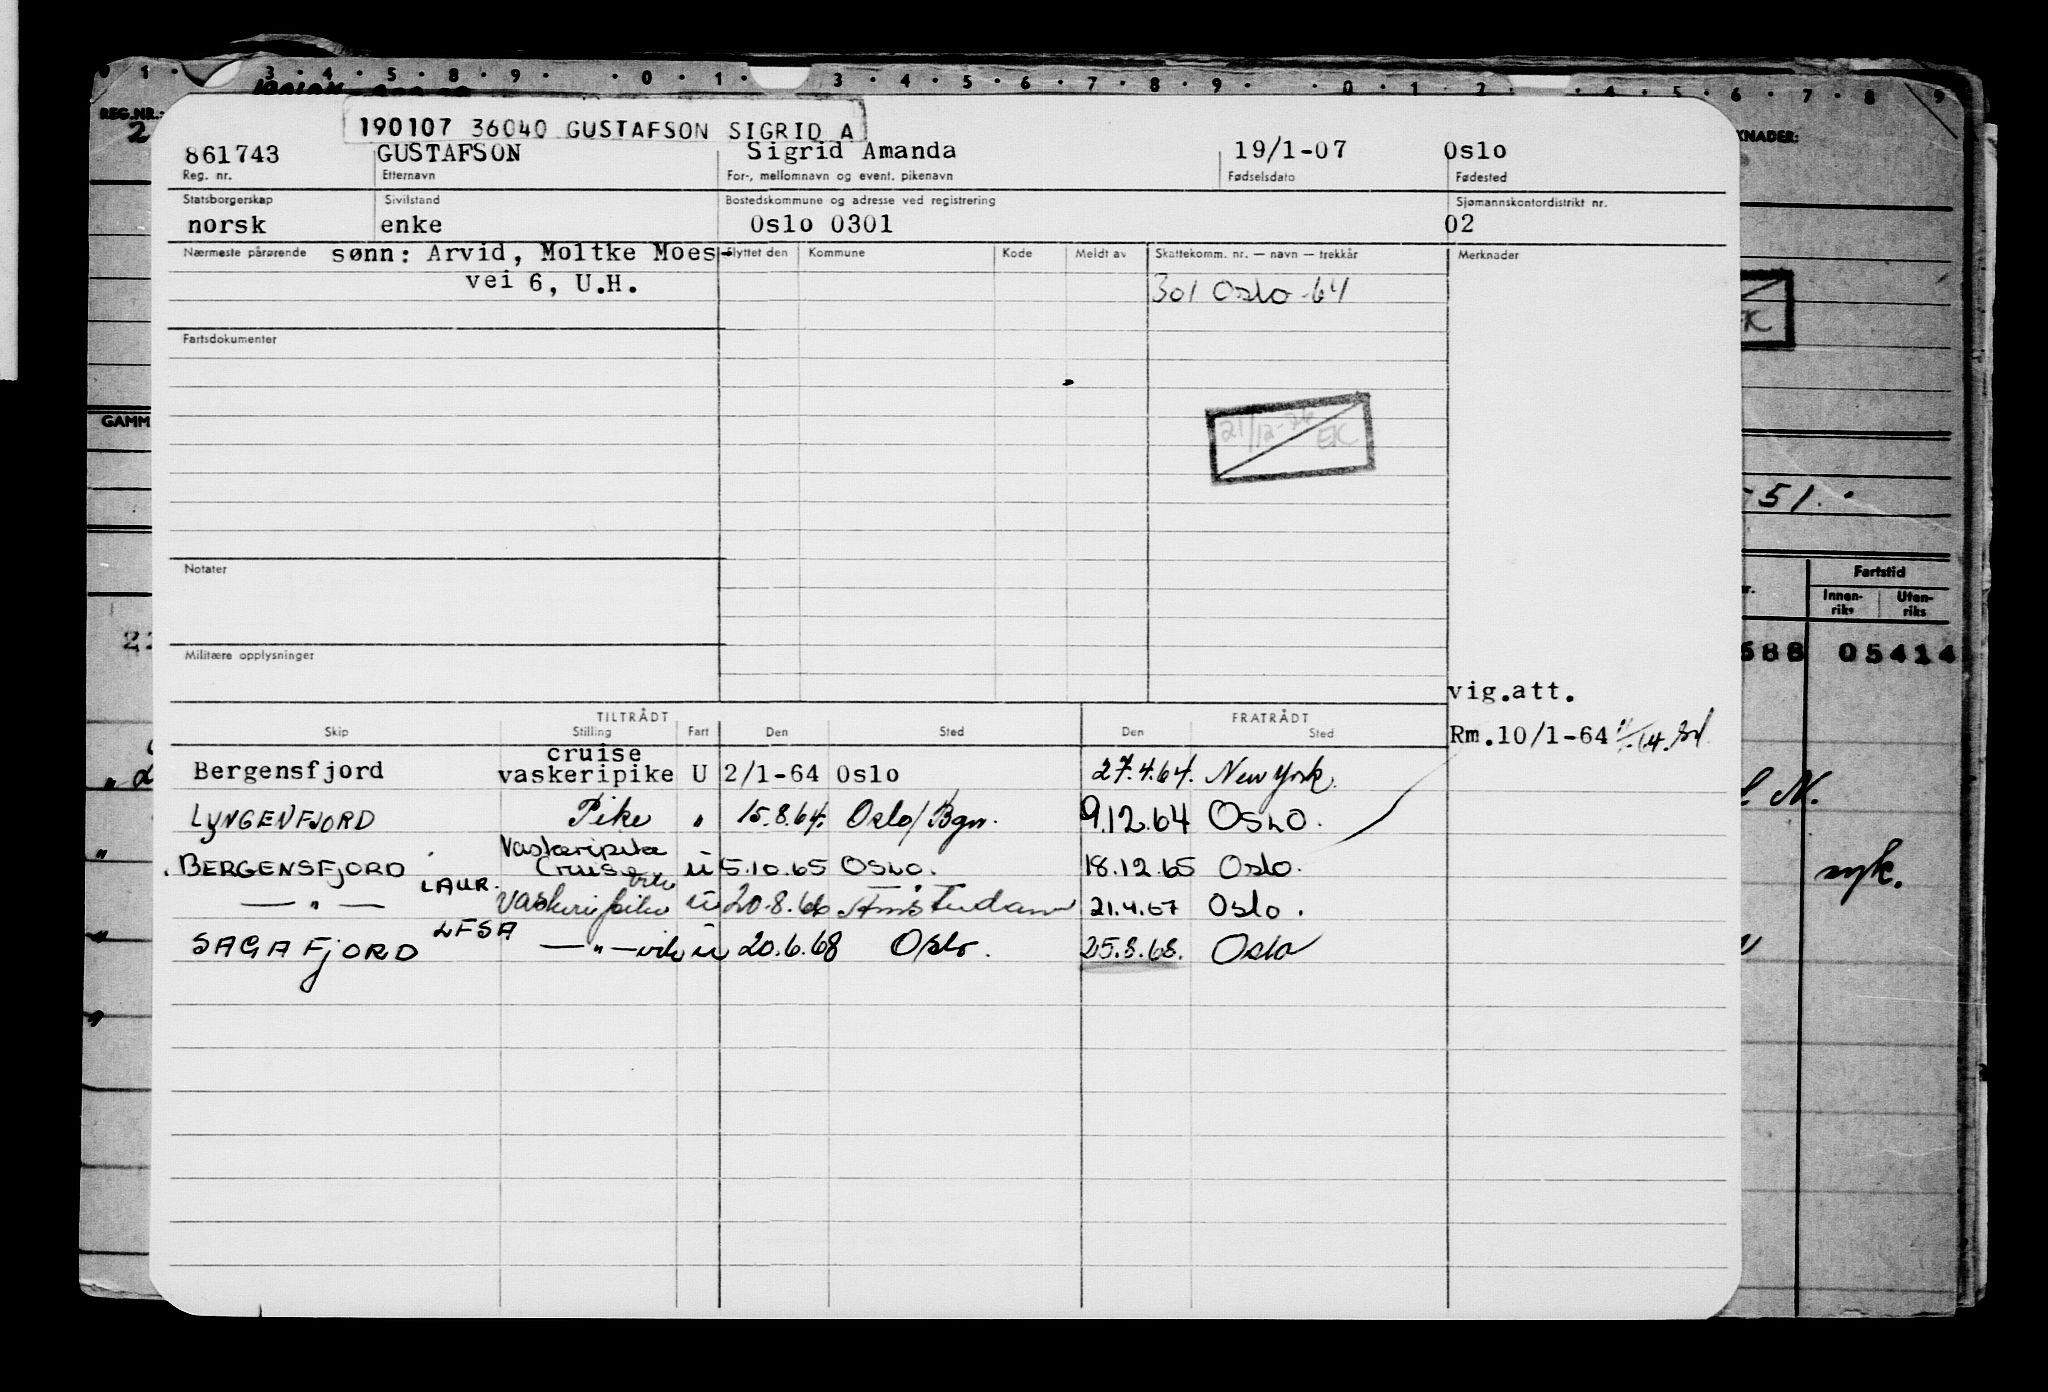 190107 36040 GUSTAFSON SIGRID A
861743 GUSTAFSON Sigrid Amanda 19/1-07 Oslo
Reg. nr. Etternavn For-, mellomnavn og event. pikenavn Fødselsdato Fødested
Statsborgerskap Sivilstand Bostedskommune og adresse ved registrering Sjømannskontordistrikt nr.
norsk enke Oslo 0301 02
Nærmeste pårørende sønn: Arvid, Moltke Moes- Flyttet den Kommune Kode Meldt av Skattekomm. nr. — navn — trekkår Merknader
vei 6, U.H. 301 Oslo -64
Fartsdokumenter
EK
Notater
Militære opplysninger
vig.att.
TILTRÅDT FRATRÅDT
Skip Stilling Fart Den Sted Den Sted Rm.10/1-64
cruise
Bergensfjord vaskeripike U 2/1-64 Oslo 27.4.64. New York.
LYNGENFJORD Pike " 15.8.64. Oslo/Bgn. 9.12.64 OSLO.
Vaskeripike
BERGENSFJORD Cruise U 5.10.65 OSLO. 18.12.65 Oslo.
LAUR. vik
— " — Vaskeripike U 20.8.66 Amsterdam 21.4.67 Oslo.
LFSA
SAGAFJORD — " — vik U 20.6.68 Oslo. 25.8.68. Oslo
REG.NR.:
2
KNADER:
GAMM
EK
-51.
Fartstid
Innen-
riks
Uten-
riks
22
588 05414
N.
syk.